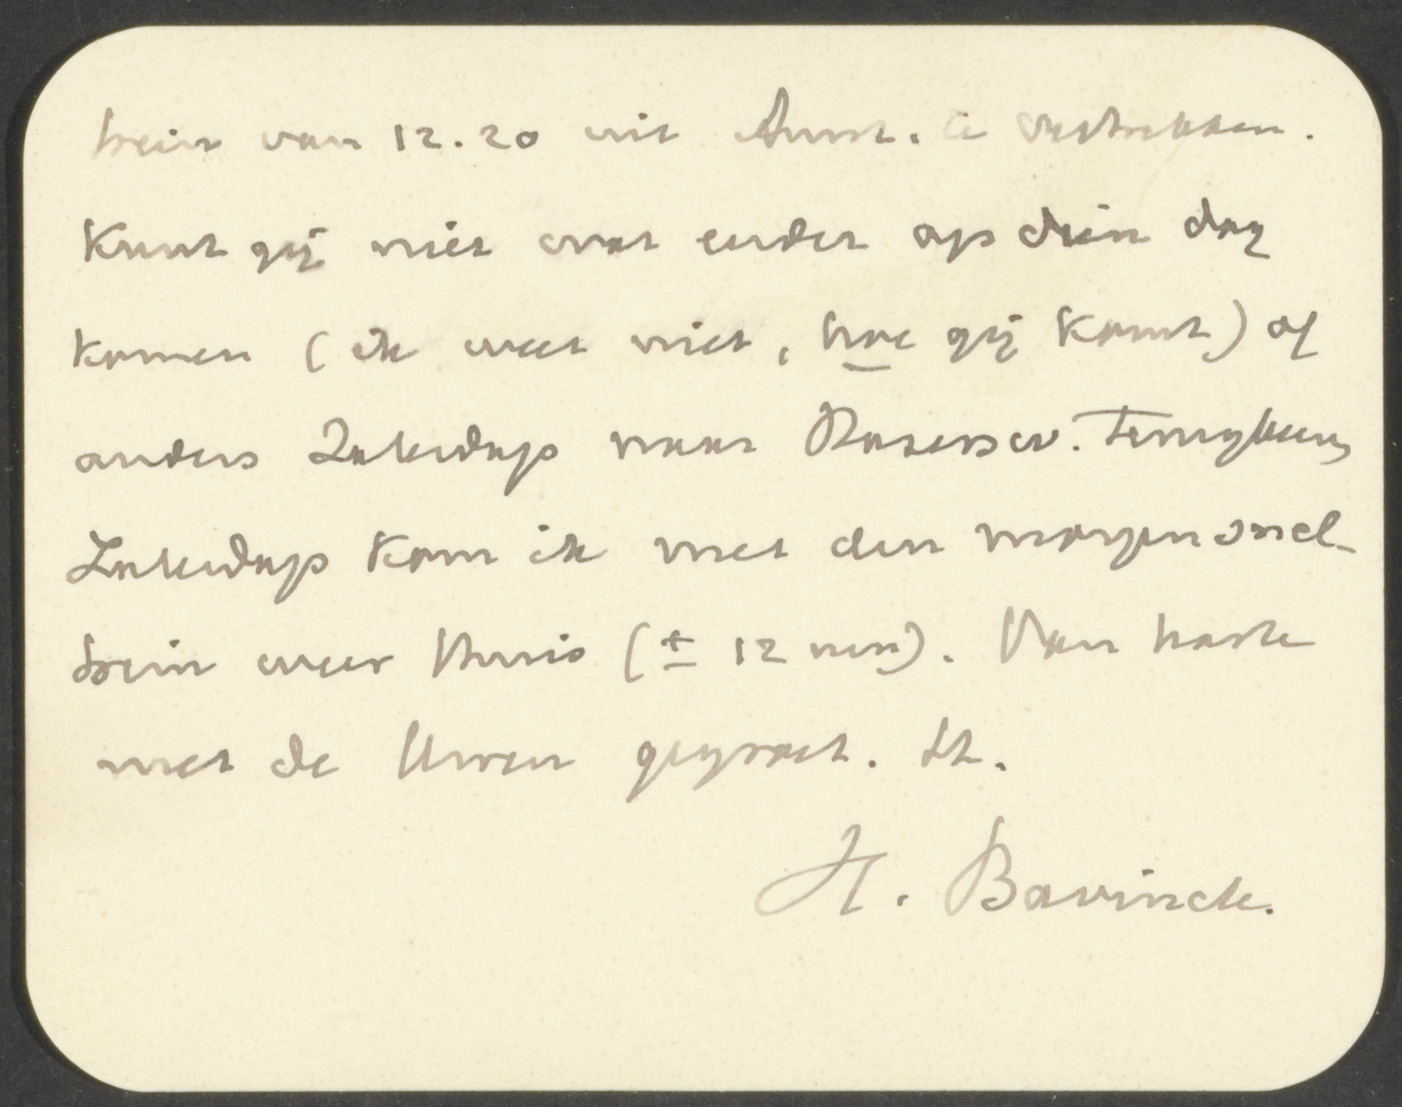 trein van 12.20 uit Amst. te vertrekken.
Kunt gij niet wat eerder op dien dag
komen (ik weet niet, hoe gij komt) of
anders Zaterdags naar Terugkeer
Zaterdags kom ik met den morgensnel-
trein weer thuis (± 12 uur). Van harte
met de Uwen gegroet. tt.
H. Bavinck.